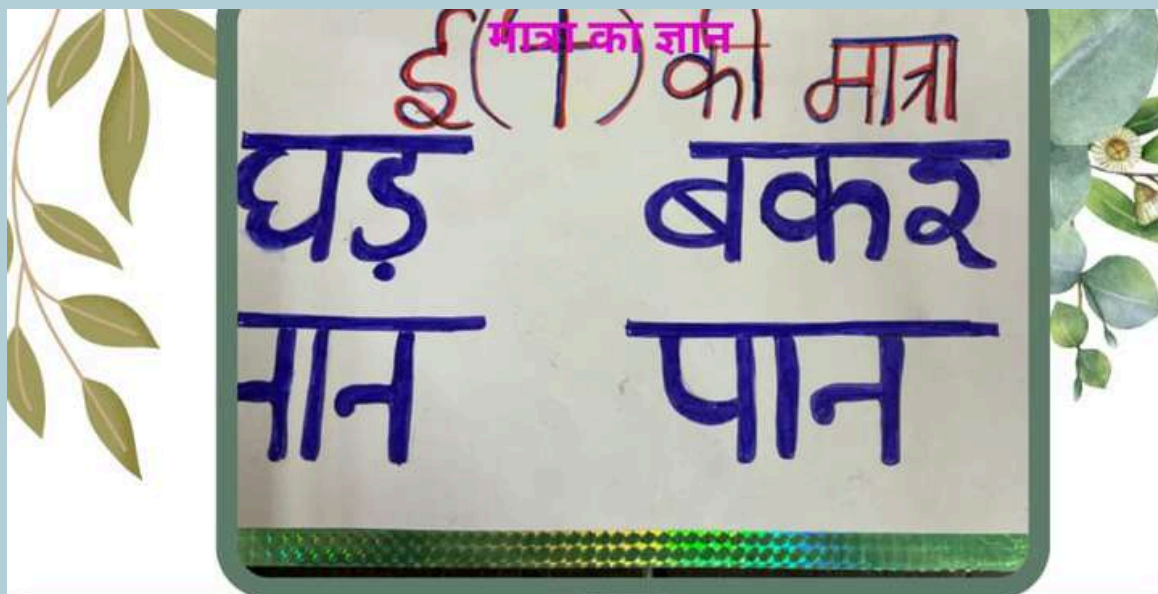 मात्रा का ज्ञान
ई(ी) की मात्रा
घड़ बकर
नान पान